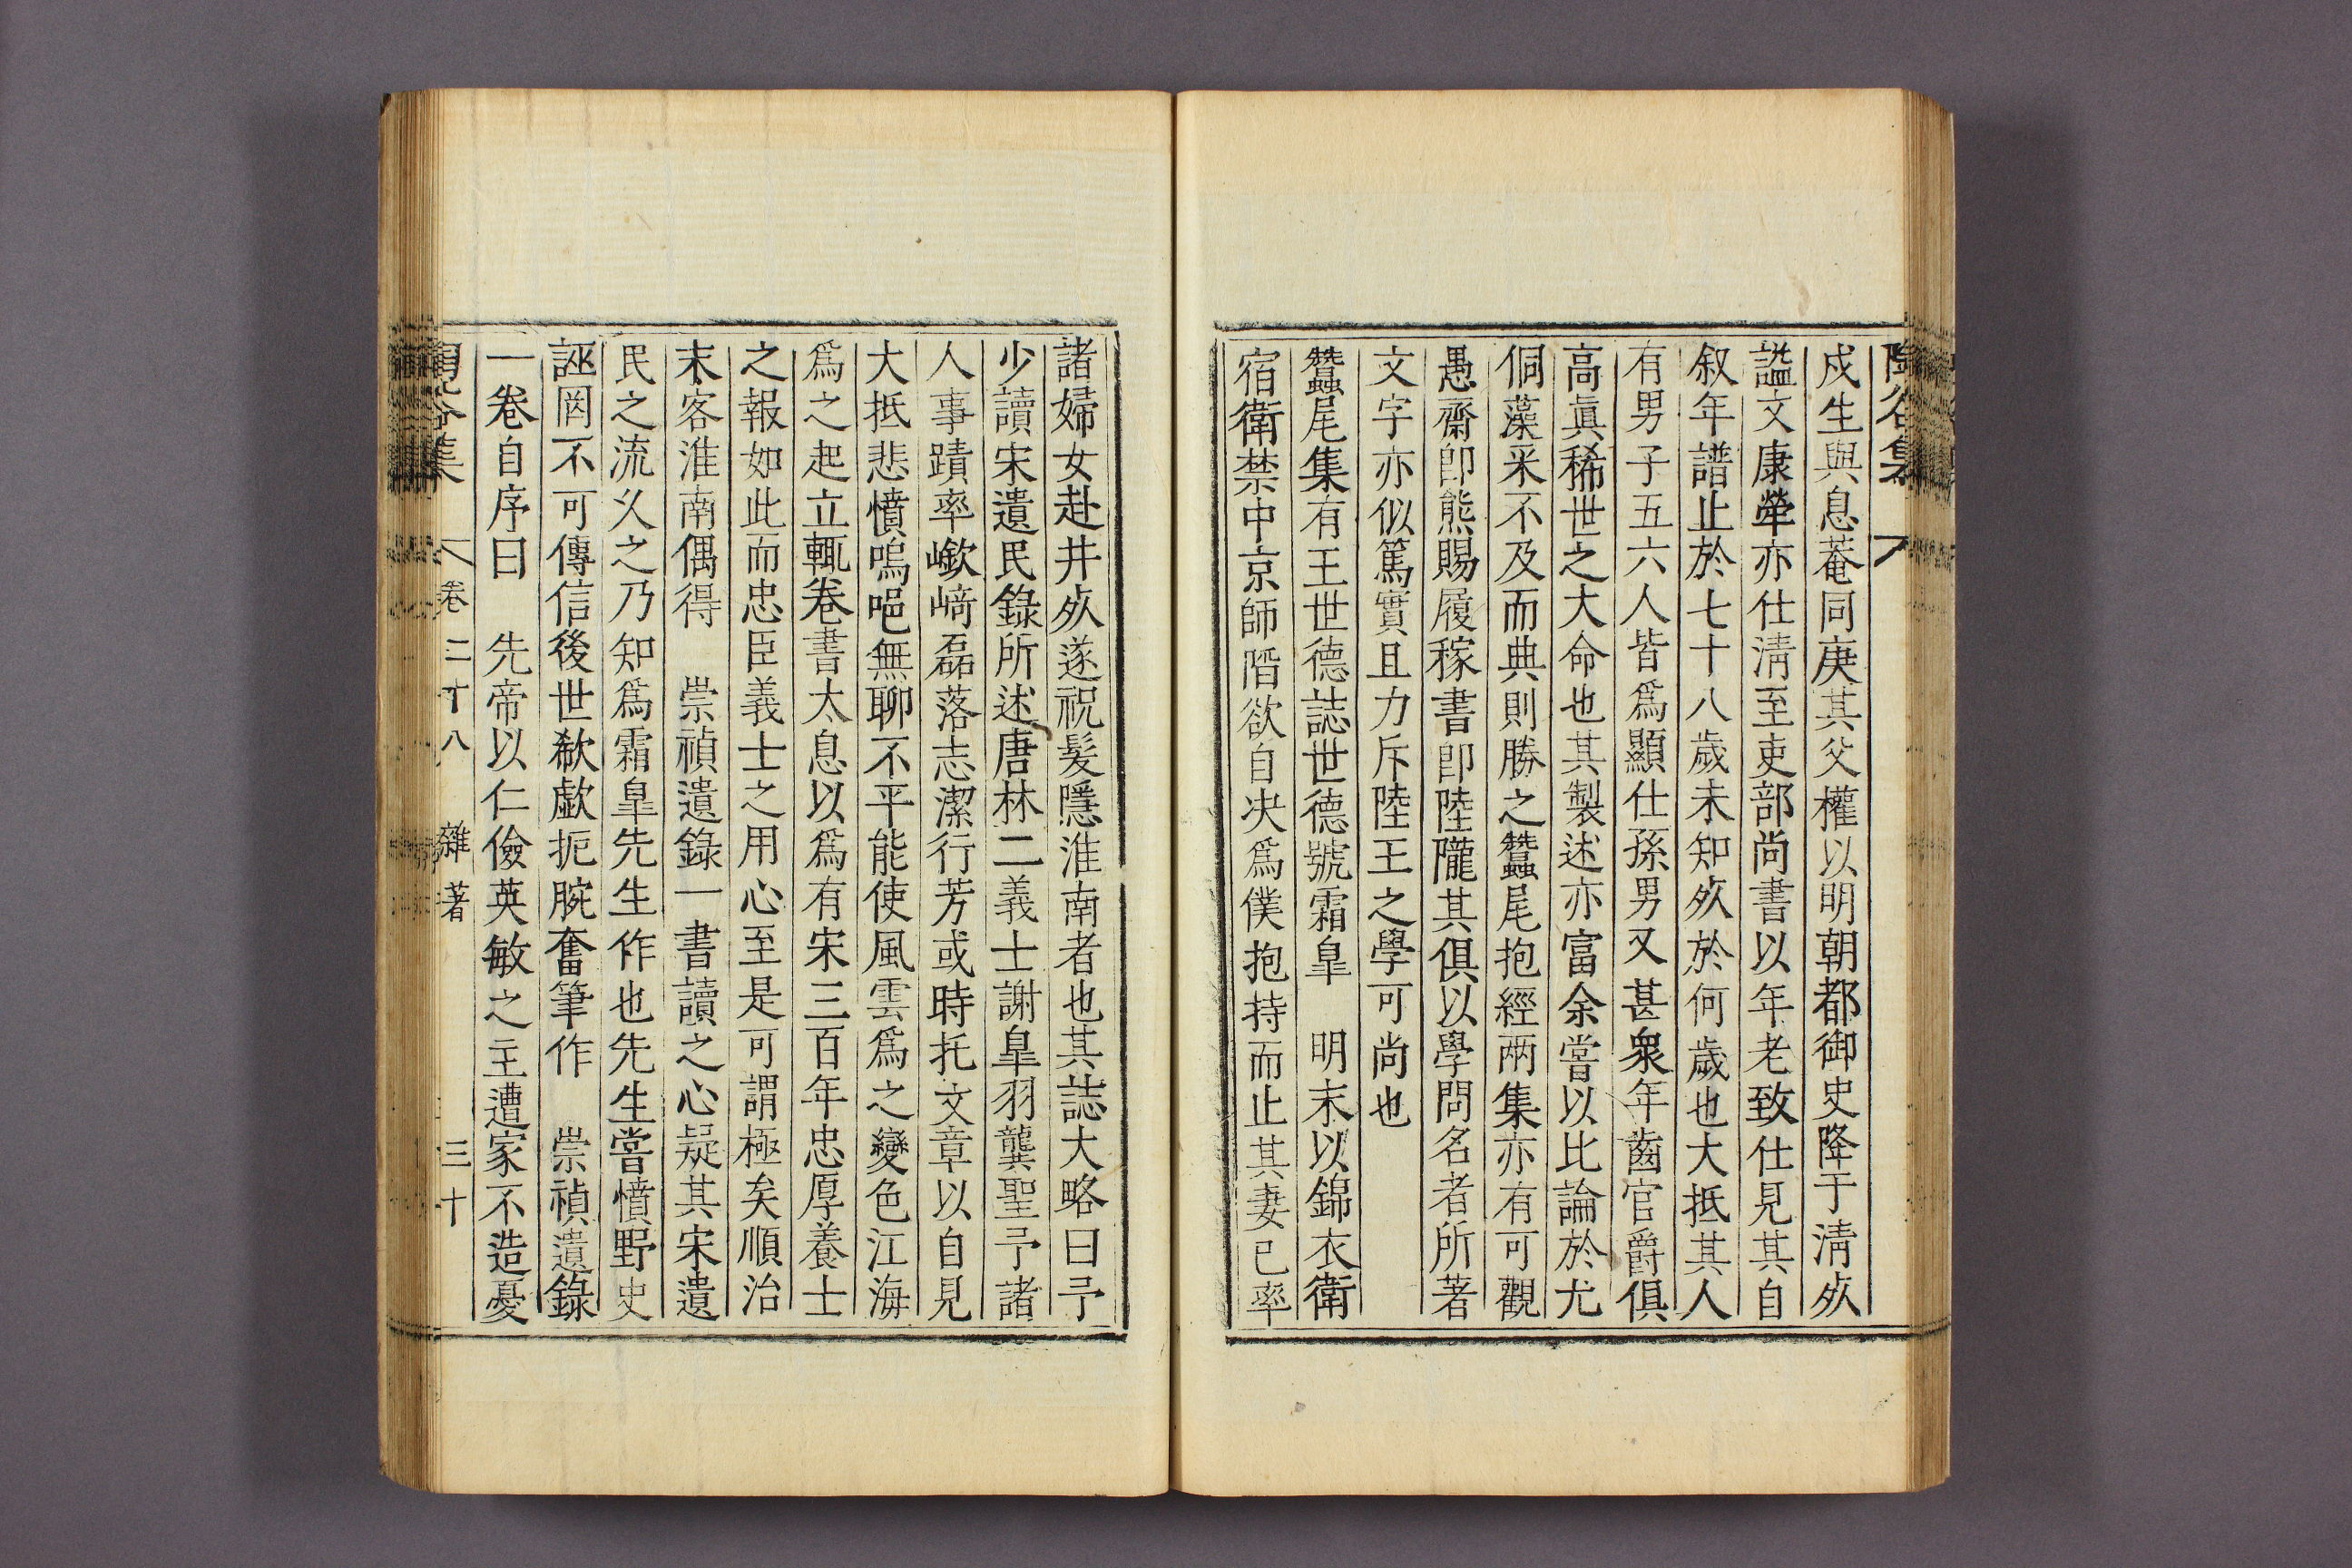 陶谷集
戍生與息菴同庚其父權以明朝都御史降于淸㱐
謚文康犖亦仕淸至吏部尙書以年老致仕見其自
叙年譜止於七十八歲未知㱐於何歲也大抵其人
有男子五六人皆爲顯仕孫男又甚衆年齒官爵俱
高眞稀世之大命也其製述亦富余嘗以比論於尤
侗藻采不及而典則勝之蠶尾抱經兩集亦有可觀
愚齋卽熊賜履稼書卽陸隴其俱以學問名者所著
文字亦似篤實且力斥陸王之學可尙也
蠶尾集有王世德誌世德號霜臯 明末以錦衣衛
宿衛禁中京師陷欲自决爲僕抱持而止其妻已率
諸婦女赴井㱐遂祝髮隱淮南者也其誌大略曰予
少讀宋遺民錄所述唐林二義士謝臯羽龔聖予諸
人事蹟率嶔﨑磊落志潔行芳或時托文章以自見
大抵悲憤嗚唈無聊不平能使風雲爲之變色江海
爲之起立輒卷書太息以爲有宋三百年忠厚養士
之報如此而忠臣義士之用心至是可謂極矣順治
末客淮南偶得 崇禎遺錄一書讀之心疑其宋遺
民之流久之乃知爲霜臯先生作也先生嘗憤野史
誣罔不可傳信後世欷歔扼腕奮筆作 崇禎遺錄
一卷自序曰 先帝以仁儉英敏之主遭家不造憂
陶谷集 卷二十八 雜著 三十